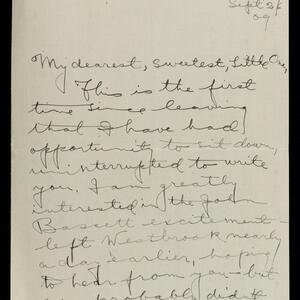 Sept 26
09
My dearest, sweetest, Little One,
This is the first
time since leaving
that I have had
opportunity to sit down,
uninterrupted to write
you. I am greatly
interested in the John
Bassett excitement -
left Westbrook nearly
a day earlier, hoping
to hear from you - but
probably did